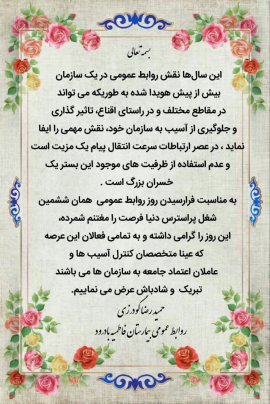 بسمه تعالی
این سال‌ها نقش روابط عمومی در یک سازمان
بیش از پیش هویدا شده به طوریکه می تواند
در مقاطع مختلف و در راستای اقناع، تاثیر گذاری
و جلوگیری از آسیب به سازمان خود، نقش مهمی را ایفا
نماید ، در عصر ارتباطات سرعت انتقال پیام یک مزیت است
و عدم استفاده از ظرفیت های موجود این بستر یک
خسران بزرگ است .
به مناسبت فرارسیدن روز روابط عمومی  همان ششمین
شغل پراسترس دنیا فرصت را مغتنم شمرده،
این روز را گرامی داشته و به تمامی فعالان این عرصه
که عینا متخصصان کنترل آسیب ها و
عاملان اعتماد جامعه به سازمان ها می باشند
تبریک  و شادباش عرض می نماییم.
حمیدرضا گودرزی
روابط عمومی بیمارستان فاطمیه بادرود